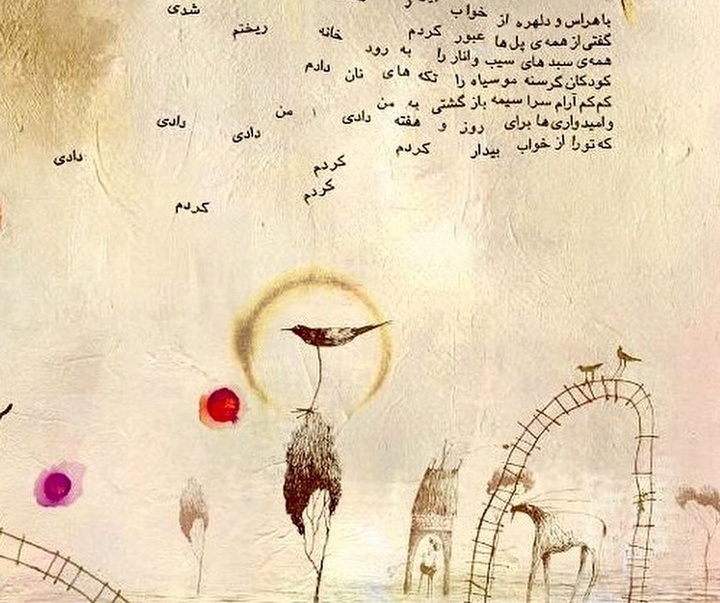 با هراس و دلهره از خواب شدی
گفتی از همه ی پل ها عبور کردم خانه ریختم
همه‌ی سبد های سیب و انار را به رود
کودکان گرسنه مو سیاه را تکه های نان دادم
کم کم آرام سرا سیمه باز گشتی به من من
و امیدواری ها برای روز و هفته دادی دادی دادی
که تو را از خواب بیدار کردم کردم کردم کردم دادی